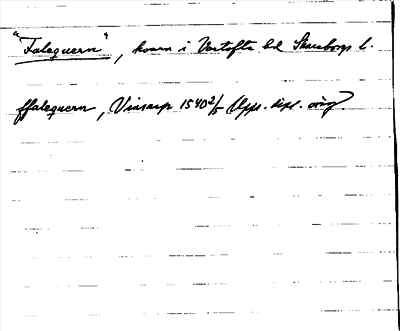 "Falequern", kvarn i Vartofta hd Skarborgs l.
ffalequern, Vinsarp 1540 2/5 Upps. dipl. orig.